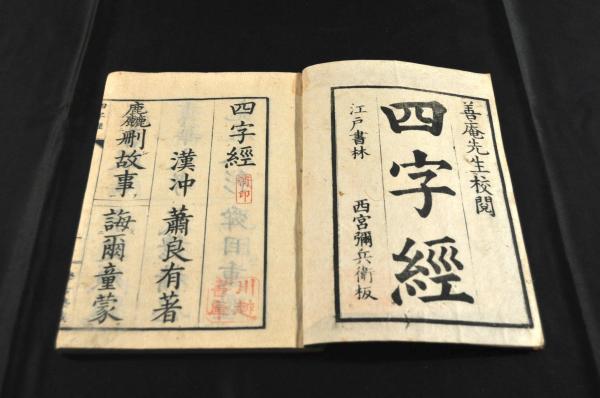 善庵先生校閲
四字經
江戸書林
西宮彌兵衛板
四字經
漢冲 蕭良有著
麤刪故事 誨爾童蒙